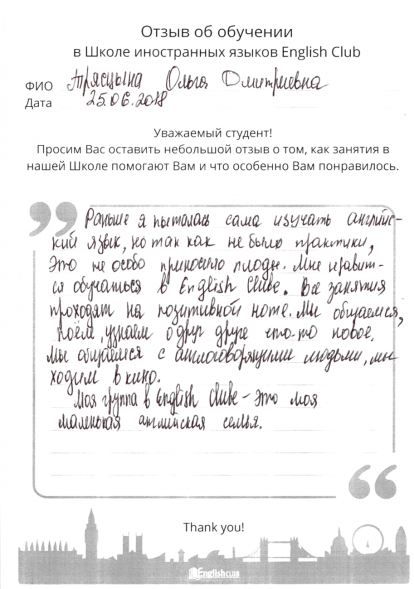 Отзыв об обучении
в Школе иностранных языков English Club
ФИО Трясцына Ольга Дмитриевна
Дата 25.06.2018
Уважаемый студент!
Просим Вас оставить небольшой отзыв о том, как занятия в
нашей Школе помогают Вам и что особенно Вам понравилось.
Раньше я пыталась сама изучать англий-
кий язык, но так как не было практики,
это не особо приносило плоды. Мне нравит-
ся обучаться в English Clube. Все занятия
проходят на позитивной ноте. Мы общаемся,
поём, узнаём о друг друге что-то новое.
Мы общаемся с англоговорящими людьми, мы
ходим в кино.
Моя группа в English Clube - это моя
маленькая английская семья.
Thank you!
English CLUB